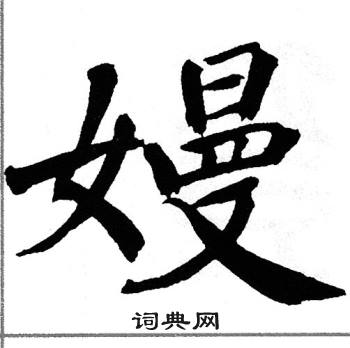 嫚
词典网